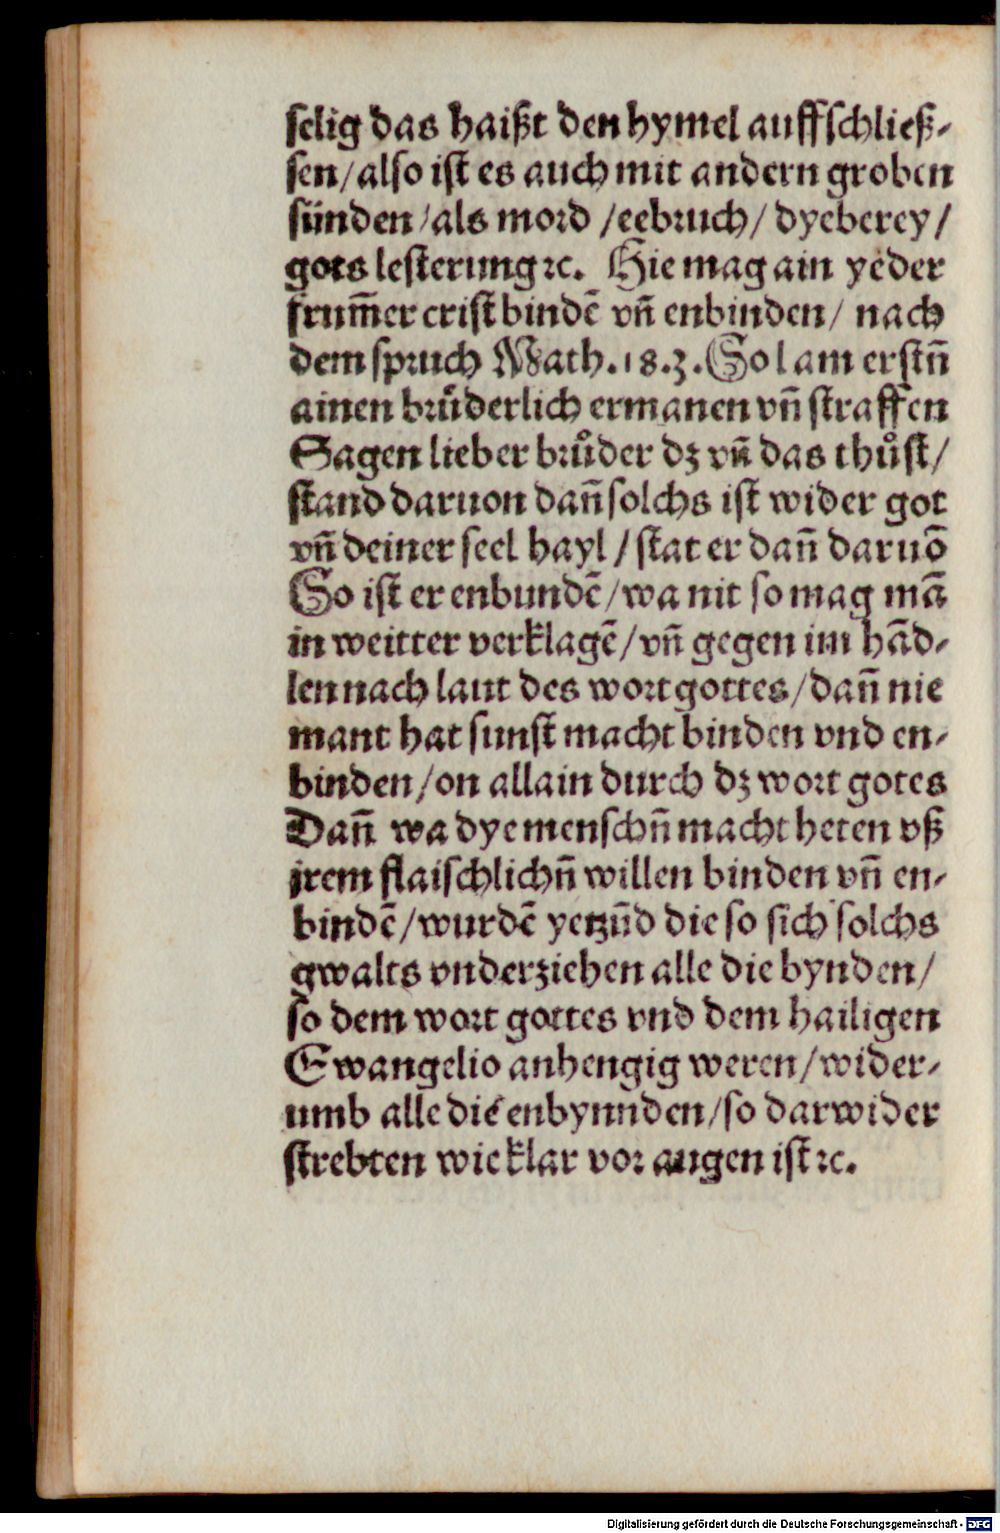 selig das haißt den hymel auffschließ-
sen/also ist es auch mit andern groben
sünden/als mord /eebruch/ dyeberey/
gots lesterung ⁊c. Hie mag ain yeder
frum̄er crist bindē vn̄ enbinden/ nach
dem spruch Math.18.z. So l am erstn̄
ainen brůderlich ermanen vn̄ straffen
Sagen lieber brůder dz vn̄ das thůst/
stand daruon dan̄ solchs ist wider got
vn̄ deiner seel hayl /stat er dan̄ daruō
So ist er enbundē/wa nit so mag mā
in weitter verklagē/vn̄ gegen im hād-
len nach laut des wort gottes/dan̄ nie
mant hat sunst macht binden vnd en-
binden/on allain durch dz wort gotes
Dan̄ wa dye menschn̄ macht heten vß
jrem flaischlichn̄ willen binden vn̄ en-
bindē/wurdē yetzūd die so sich solchs
gwalts vnderziehen alle die bynden/
so dem wort gottes vnd dem hailigen
Ewangelio anhengig weren/wider-
umb alle die enbynnden/so darwider
strebten wie klar vor augen ist ⁊c.
Digitalisierung gefördert durch die Deutsche Forschungsgemeinschaft - DFG